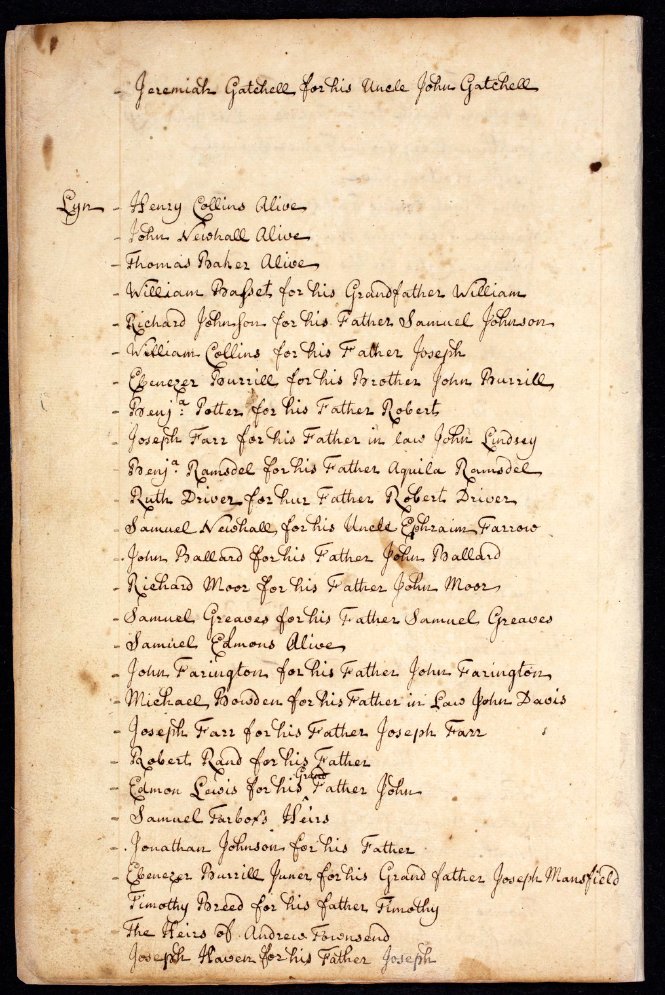 - Jeremiah Gatchell for his Uncle John Gatchell
Lyn - Henry Collins Alive
- John Newhall Alive
- Thomas Baker Alive
- William Basset for his Grandfather William
- Richard Johnson for his Father Samuel Johnson
- William Collins for his Father Joseph
- Ebenezer Burrill for his Brother John Burrill
- Benja: Potter for his Father Robert
- Joseph Farr for his Father in law John Lindsey
- Benja. Ramsdel for his Father Aquila Ramsdel
- Ruth Driver for hur Father Robert Driver
- Samuel Newhall for his Uncle Ephraim Farrow
- John Ballard for his Father John Ballard
- Richard Moor for his Father John Moor
- Samuel Greaves for his Father Samuel Greaves
- Samuel Edmons Alive
- John Farington for his Father John Farington
- Michael Bowden for his Father in Law John Davis
- Joseph Farr for his Father Joseph Farr
- Robert Rand for his Father
- Edmon Lewis for his Grand Father John
- Samuel Tarbox's Heirs
- Jonathan Johnson for his Father
- Ebenezer Burrill Juner for his Grand father Joseph Mansfield
Timothy Breed for his father Timothy
The Heirs of Andrew Townsend
Joseph Haven for his Father Joseph